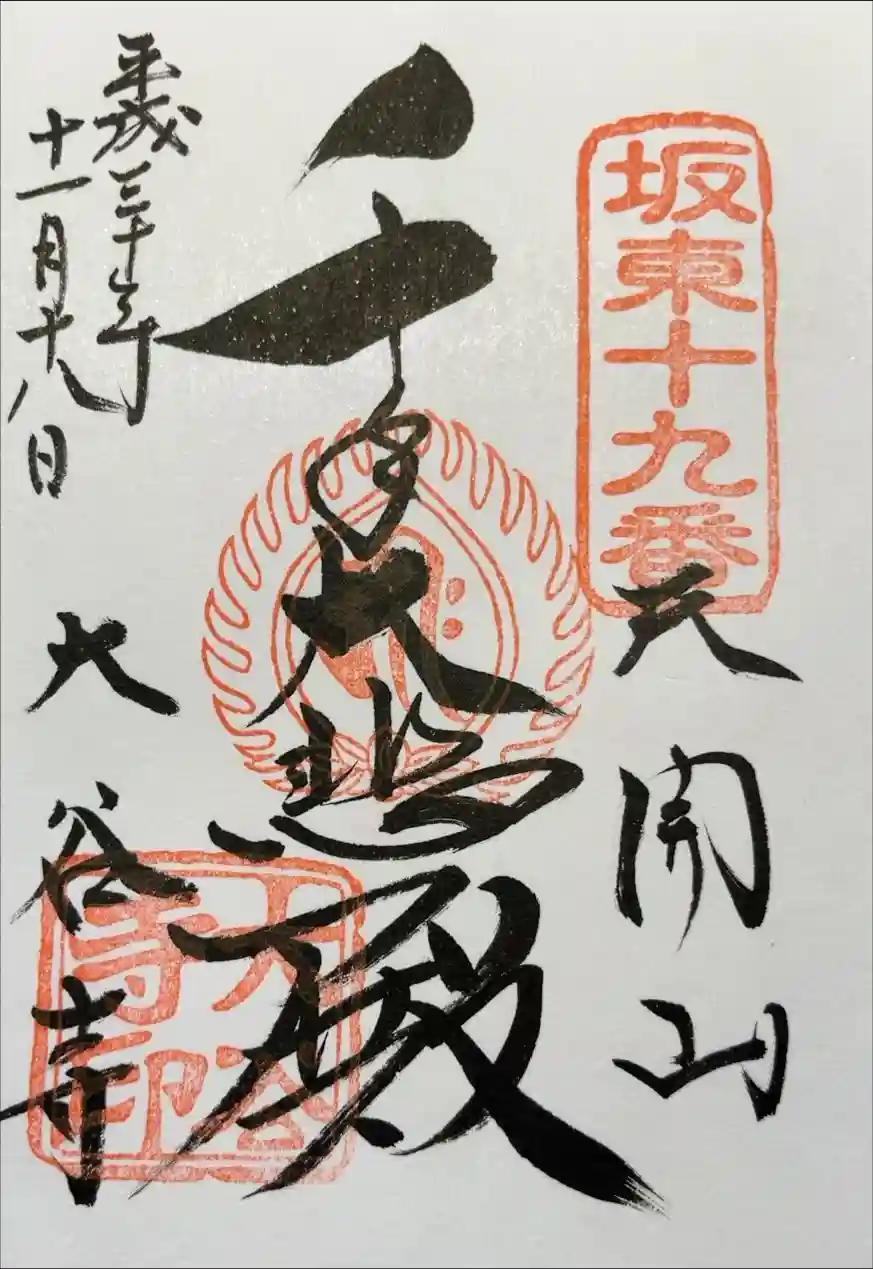 坂東十九番
天開山
千手大悲殿
大谷寺印
平成三十年
十一月十八日
大谷寺